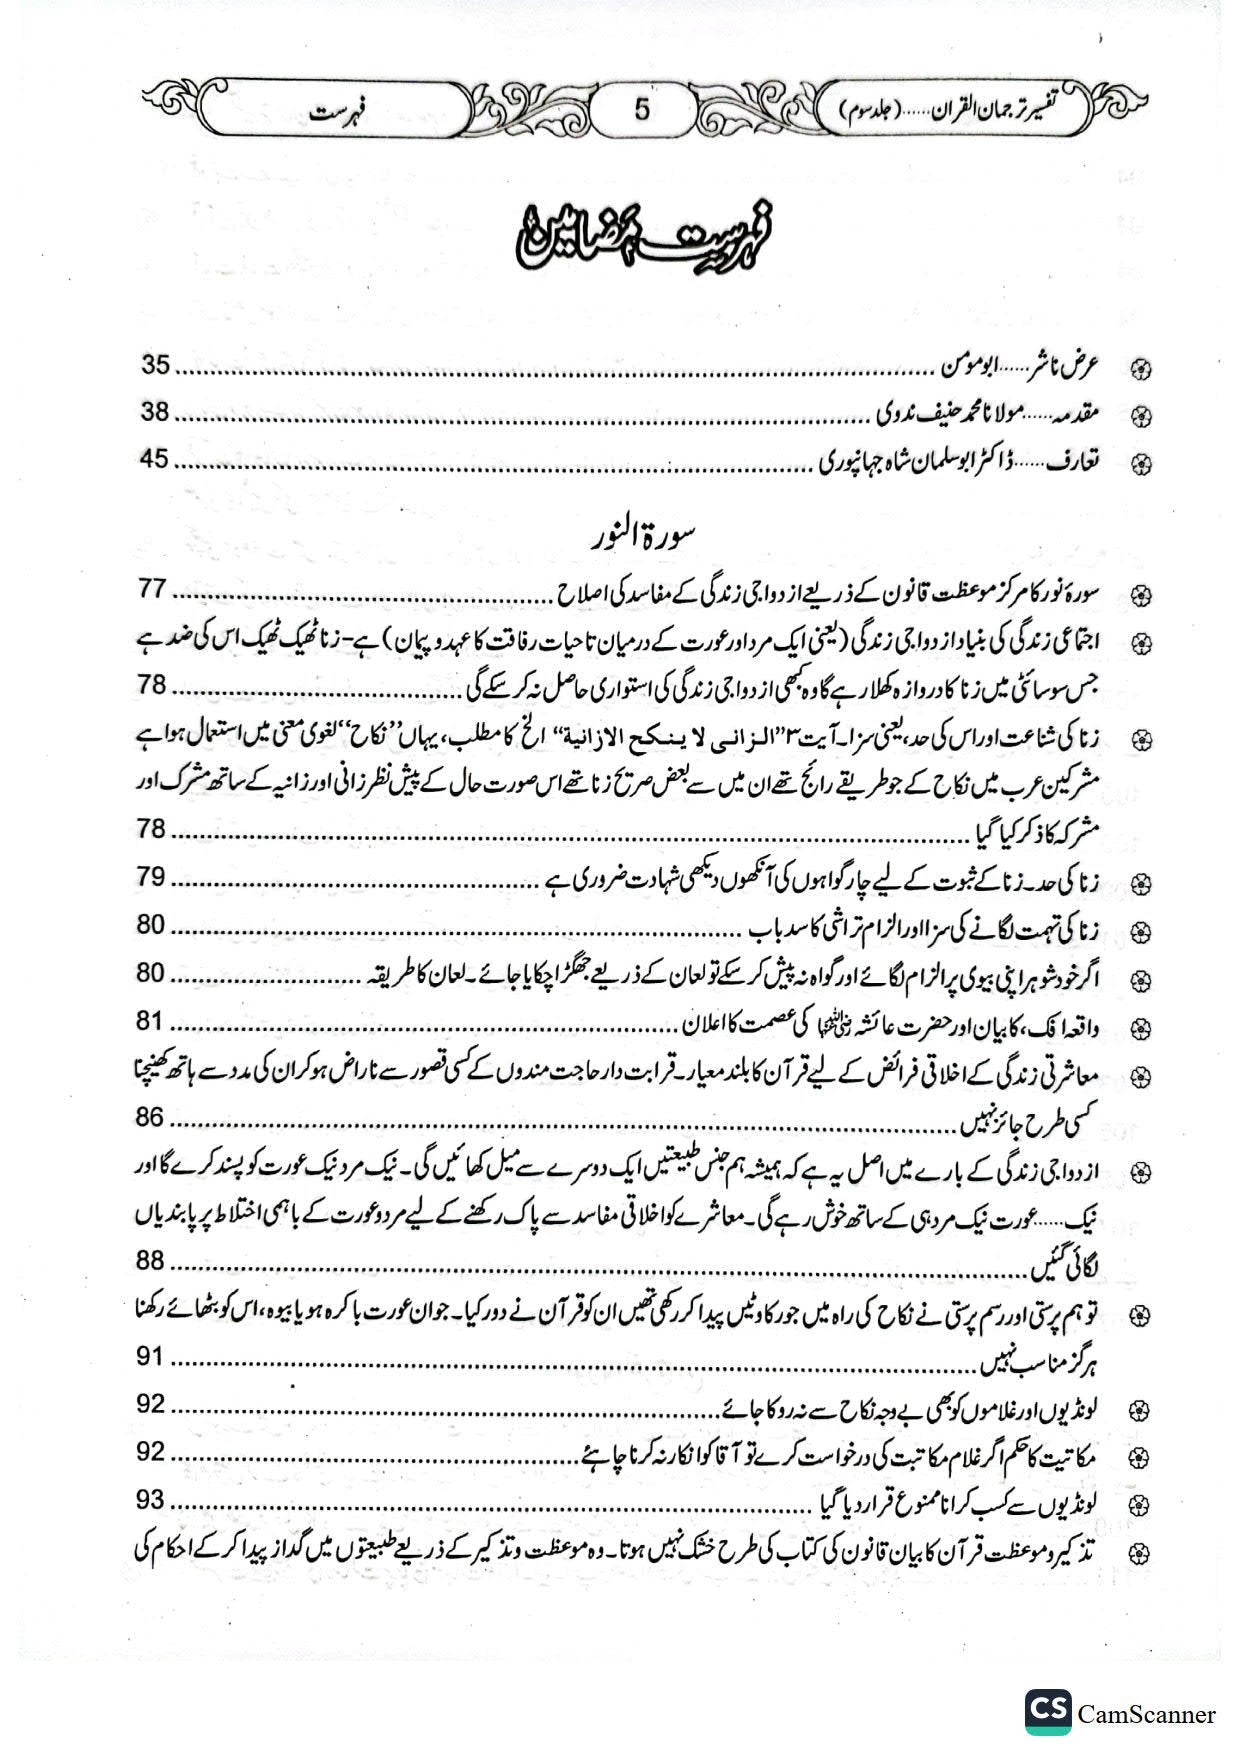 تفسیر ترجمان القران......(جلد سوم) 5 فہرست
فہرست مضامین
عرض ناشر......ابو مومن 35
مقدمہ......مولانا محمد حنیف ندوی 38
تعارف......ڈاکٹر ابو سلمان شاہ جہانپوری 45
سورۃ النور
سورۂ نور کا مرکز موعظت قانون کے ذریعے ازدواجی زندگی کے مفاسد کی اصلاح 77
اجتماعی زندگی کی بنیاد ازدواجی زندگی (یعنی ایک مرد اور عورت کے درمیان تا حیات رفاقت کا عہد و پیمان) ہے۔ زنا ٹھیک ٹھیک اس کی ضد ہے
جس سوسائٹی میں زنا کا دروازہ کھلا رہے گا وہ کبھی ازدواجی زندگی کی استواری حاصل نہ کر سکے گی 78
زنا کی شناعت اور اس کی حد، یعنی سزا۔ آیت ۳ ”الزانی لا ینکح الازانیة“ الخ کا مطلب، یہاں ”نکاح“ لغوی معنی میں استعمال ہوا ہے
مشرکین عرب میں نکاح کے جو طریقے رائج تھے ان میں سے بعض صریح زنا تھے اس صورت حال کے پیش نظر زانی اور زانیہ کے ساتھ مشرک اور
مشرکہ کا ذکر کیا گیا 78
زنا کی حد۔ زنا کے ثبوت کے لیے چار گواہوں کی آنکھوں دیکھی شہادت ضروری ہے 79
زنا کی تہمت لگانے کی سزا اور الزام تراشی کا سدباب 80
اگر خود شوہر اپنی بیوی پر الزام لگائے اور گواہ نہ پیش کر سکے تو لعان کے ذریعے جھگڑا چکایا جائے۔ لعان کا طریقہ 80
واقعہ افک، کا بیان اور حضرت عائشہ رضی اللہ عنہا کی عصمت کا اعلان 81
معاشرتی زندگی کے اخلاقی فرائض کے لیے قرآن کا بلند معیار۔ قرابت دار حاجت مندوں کے کسی قصور سے ناراض ہو کر ان کی مدد سے ہاتھ کھینچنا
کسی طرح جائز نہیں 86
ازدواجی زندگی کے بارے میں اصل یہ ہے کہ ہمیشہ ہم جنس طبیعتیں ایک دوسرے سے میل کھائیں گی۔ نیک مرد نیک عورت کو پسند کرے گا اور
نیک......عورت نیک مرد ہی کے ساتھ خوش رہے گی۔ معاشرے کو اخلاقی مفاسد سے پاک رکھنے کے لیے مرد و عورت کے باہمی اختلاط پر پابندیاں
لگائی گئیں 88
توہم پرستی اور رسم پرستی نے نکاح کی راہ میں جو رکاوٹیں پیدا کر رکھی تھیں ان کو قرآن نے دور کیا۔ جوان عورت باکرہ ہو یا بیوہ، اس کو بٹھائے رکھنا
ہرگز مناسب نہیں 91
لونڈیوں اور غلاموں کو بھی بے وجہ نکاح سے نہ روکا جائے 92
مکاتبت کا حکم اگر غلام مکاتبت کی درخواست کرے تو آقا کو انکار نہ کرنا چاہئے 92
لونڈیوں سے کسب کرانا ممنوع قرار دیا گیا 93
تذکیر و موعظت قرآن کا بیان قانون کی کتاب کی طرح خشک نہیں ہوتا۔ وہ موعظت و تذکیر کے ذریعے طبیعتوں میں گداز پیدا کر کے احکام کی
CS CamScanner